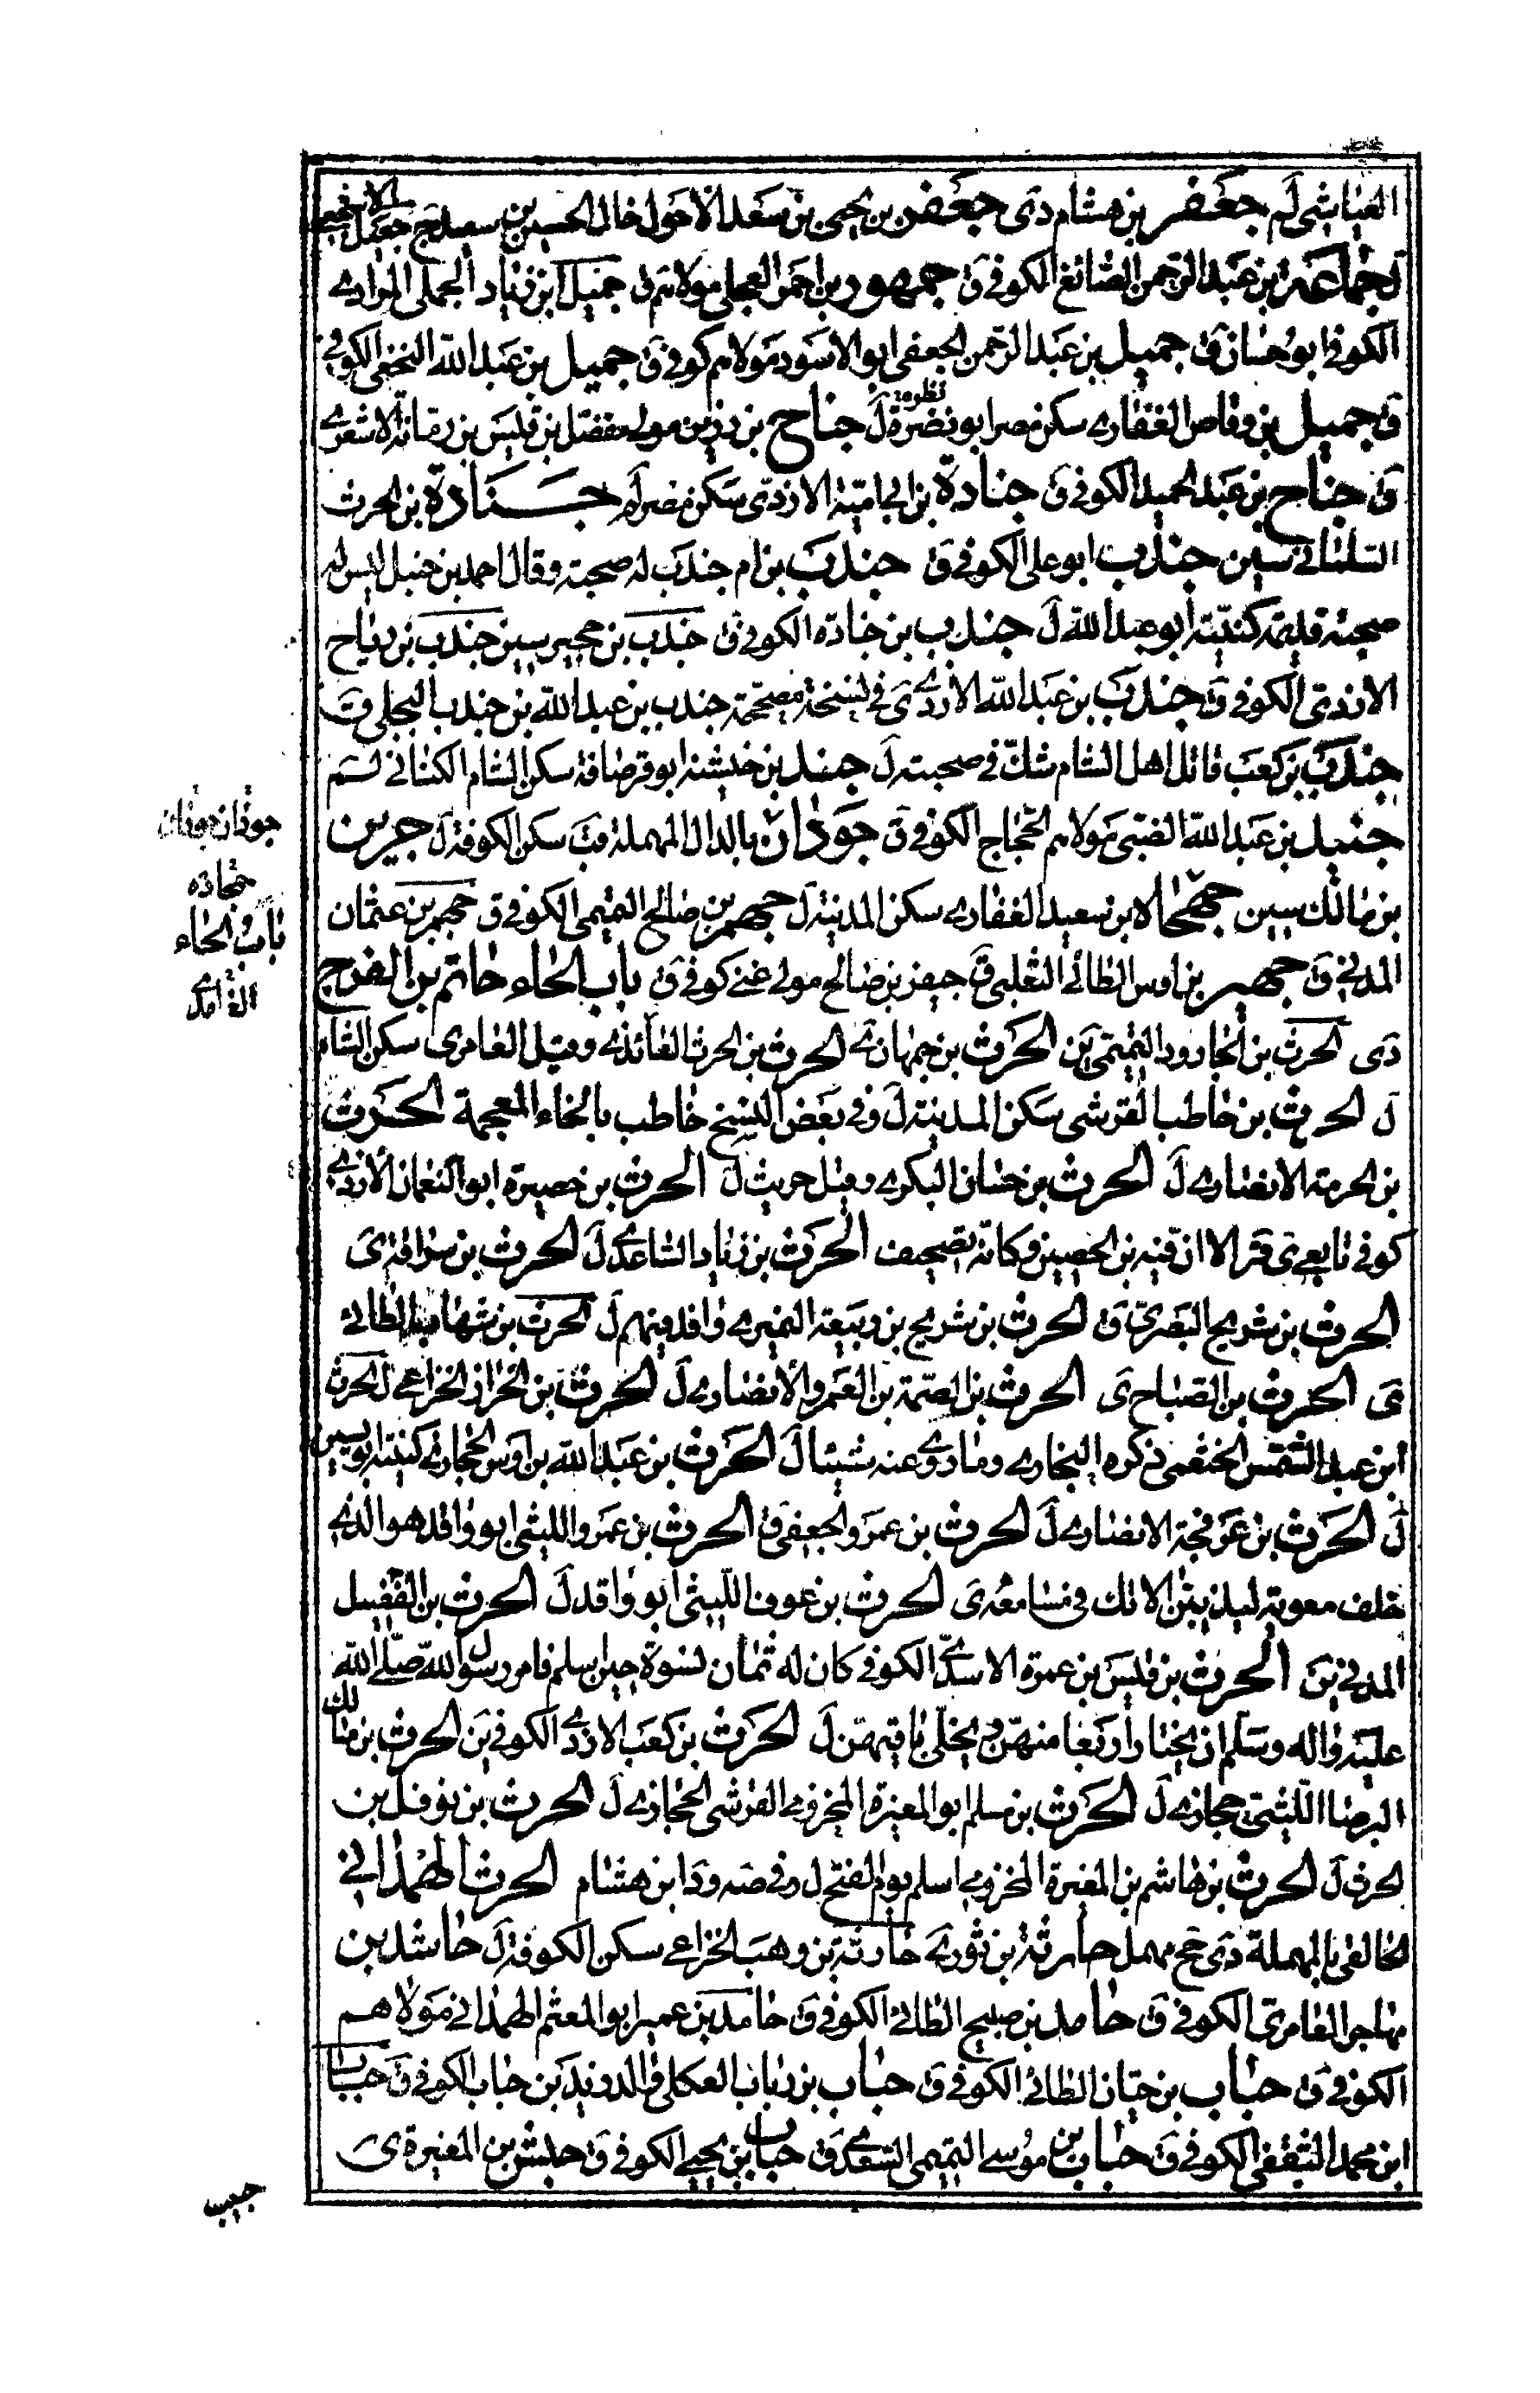 العياشى لم جعفر بن هشام دى جعفر بن يحيى بن سعد الاحول خال الحسين بن سعيد ج جعيل الاشجعى
ل جماعة بن عبد الرحمن الصائغ الكوفى ق جمهور بن احمر العجلى مولاهم ق جميل ابن زياد الجملى المرادى
الكوفى ابو حسان ق جميل بن عبد الرحمن الجعفى ابو الاسود مولاهم كوفى ق جميل بن عبد الله النخعى الكوفى
ق جميل بن وقاص الغفارى سكن مصر ابو نضرة ل جناح بن رزين مولى مفضل بن قيس بن رمانة الاشعرى
ق جناح بن عبد الحميد الكوفى ق جنادة بن ابى امية الازدى سكن مصر ل جنادة بن الحرث
السلمانى سين جندب ابو على الكوفى ق جندب بن ام جندب له صحبة وقال احمد بن حنبل ليس له
صحبة قديمة كنيته ابو عبد الله ل جندب بن جنادة الكوفى ق جندب بن حجير سين جندب بن رياح
الازدى الكوفى ق جندب بن عبد الله الازدى ى فى نسخة مصححة جندب بن عبد الله بن جندب البجلى ق
جندب بن كعب قاتل اهل الشام شك فى صحبته ل جندل بن خيشنه ابو قرصافة سكن الشام الكنانى
جنيد بن عبد الله الضبى مولاهم الحجاج الكوفى ق جودان بالدال المهملة سكن الكوفة ل جوين
بن مالك سين جهجاه ابن سعيد الغفارى سكن المدينة ل جهم بن صالح التميمى الكوفى ق جهم بن عثمان
المدنى ق جهير بن اوس الطائى الثعلبى ق جيفر بن صالح مولى غنى كوفى ق باب الحاء حاتم بن الفرج
دى الحرث بن الجارود التميمى ين الحرث بن جمهان ى الحرث بن الحرث الغائذى وقيل الغامرى سكن الشام
ل الحرث بن حاطب القرشى سكن المدينة ل وفى بعض النسخ خاطب بالخاء المعجمة الحرث
بن الحرمة الانصارى ل الحرث بن حسان البكرى وقيل حريث ل الحرث بن حصيرة ابو النعمان الازدى
كوفى تابعى ى قر الا ان فيه بن الحصين وكانه تصحيف الحرث بن زياد الساعدى ل الحرث بن سراقة ى
الحرث بن شريح البصرى ق الحرث بن شريح بن ربيعة النميرى وافد منهم ل الحرث بن شهاب الطائى
ى الحرث بن الصباح ى الحرث بن الصمة بن العمرو الانصارى ل الحرث بن الخزاز الخزاعى ل الحرث
ابن عبد الشمس الخثعمى ذكره البخارى وما روى عنه شيئا ل الحرث بن عبد الله بن اوس الحجازى كنيته
ل الحرث بن عرفجة الانصارى ل الحرث بن عمرو الجعفى ق الحرث بن عمرو الليثى ابو واقد هو الذى
خلف معوية الاتك فى ى الحرث بن عوف الليثى ابو واقد ل الحرث بن الفضيل
المدنى ين الحرث بن قيس بن عميرة الاسدى الكوفى كان له ثمان نسوة حين اسلم فامر رسول الله صلى الله
عليه واله وسلم ان يختار اربعا منهن ويخلى باقيهن ل الحرث بن كعب الازدى الكوفى ين الحرث بن مالك
البرصا الليثى حجازى ل الحرث بن مسلم ابو المغيرة المخزومى القرشى الحجازى ل الحرث بن نوفل بن
الحرث ل الحرث بن هاشم بن المغيرة المخزومى اسلم يوم الفتح ل وفى صه ود ابن هشام الحرث الهمدانى
الحالقى بالمهملة دى جخ مهمل حارثة بن ثور ى حارثة بن وهب الخزاعى سكن الكوفة ل حاشد بن
مهاجر العامرى الكوفى ق حامد بن صبيح الطائى الكوفى ق حامد بن عمير ابو المعتمر الهمدانى مولاهم
الكوفى ق حباب بن حيان الطائى الكوفى ق حباب بن رباب العكلى والد زيد بن حباب الكوفى ق حباب
ابن محمد الثقفى الكوفى ق حباب بن موسى التميمى السعدى ق حباب بن يحيى الكوفى ق حبش بن المغيرة ى
نظره
جوذان
جحادة
باب الحاء
الغامدى
حبيب